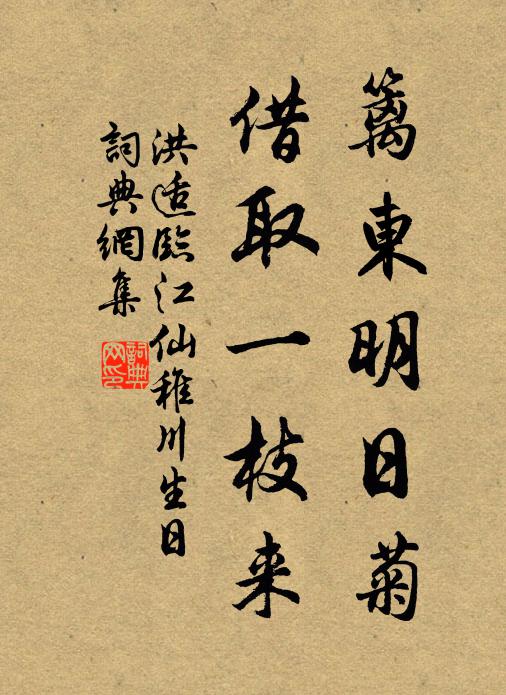 籬東明日菊
借取一枝来
洪适臨江仙稚川生日
詞典網集
詞典网印